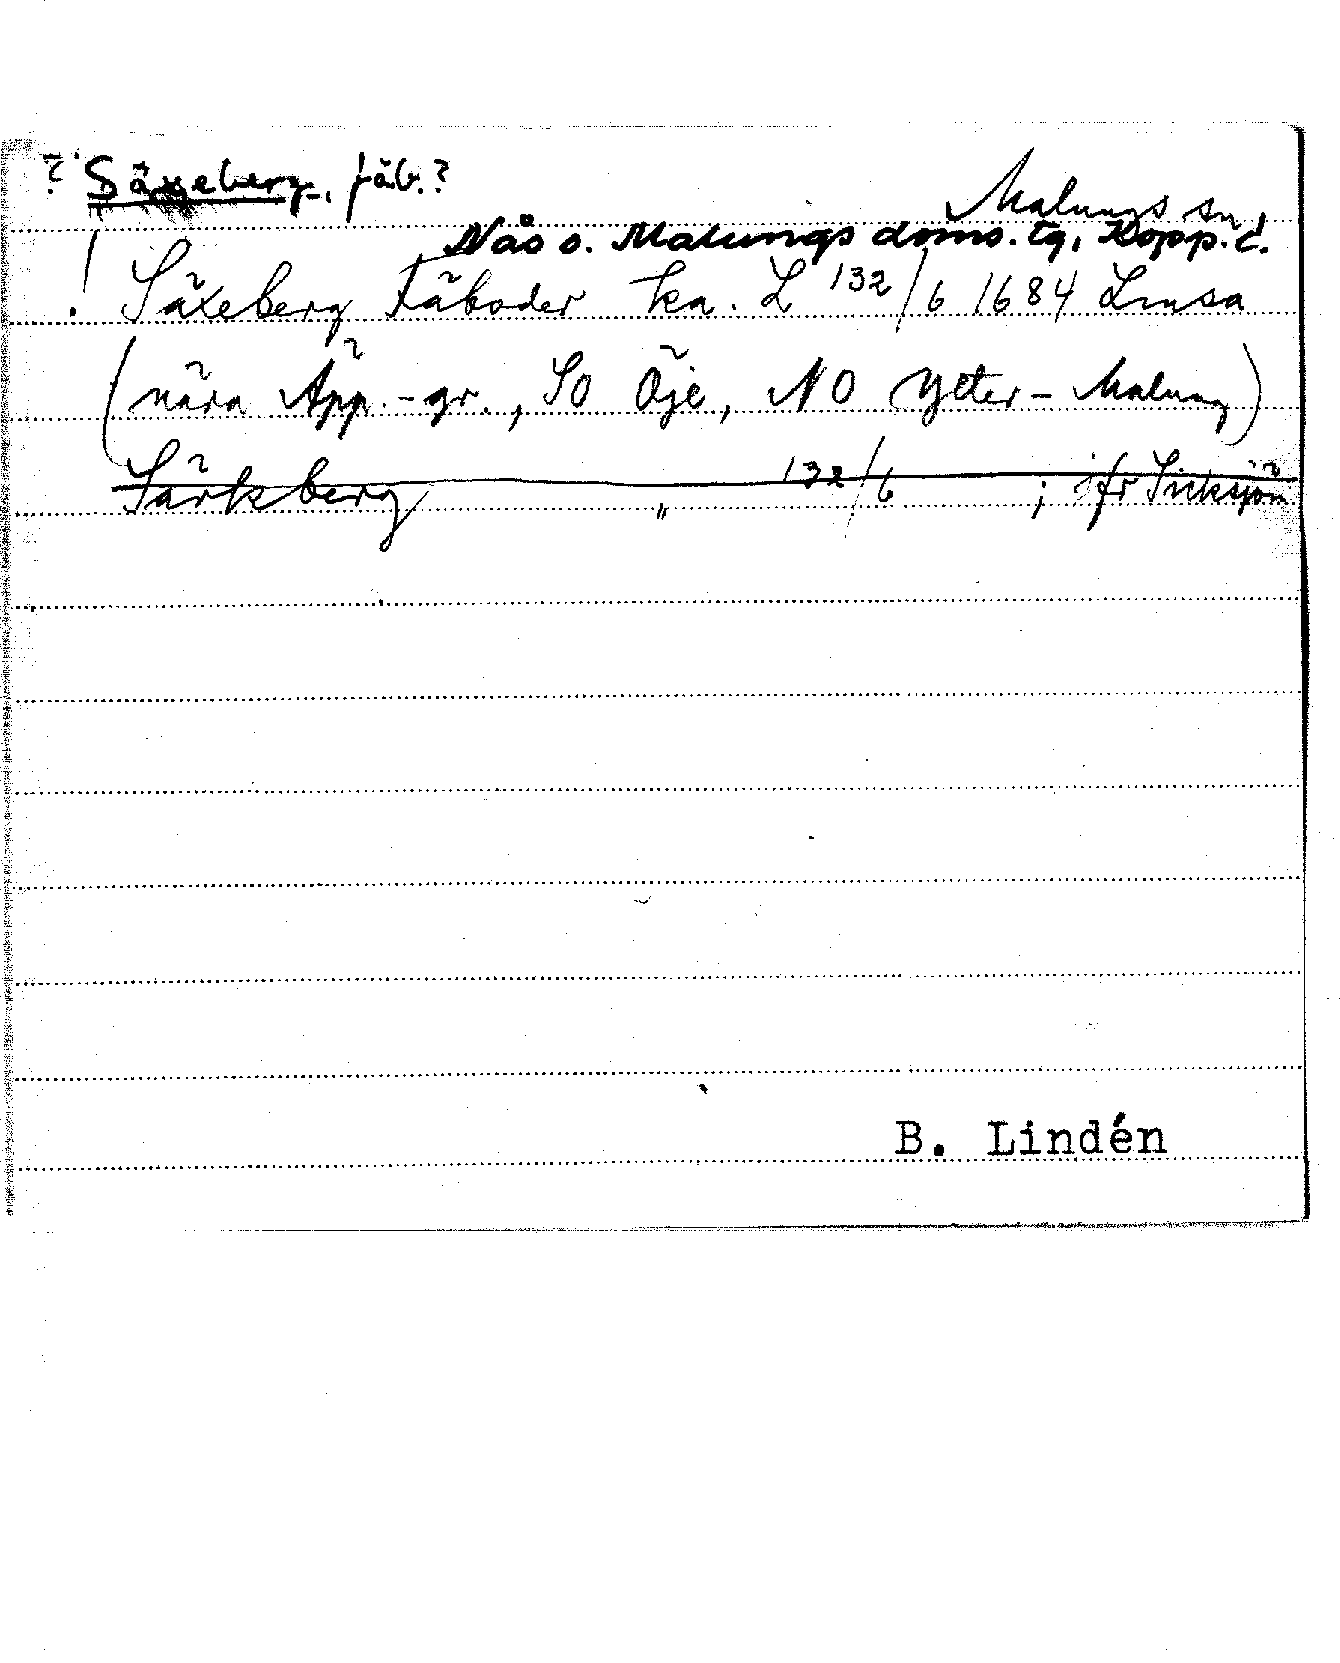 ? Säxeberg, fäb.?
Malungs sn,
Nås o. Malungs doms. tg, Kopp. l.
! Säxeberg Fäboder ka. L 132/6 1684 Linsa
(nära Äpp.-gr., SO Öje, NO Ytter-Malung)
Särkberg " 132/6 ; jfr Sicksjön
B. Lindén